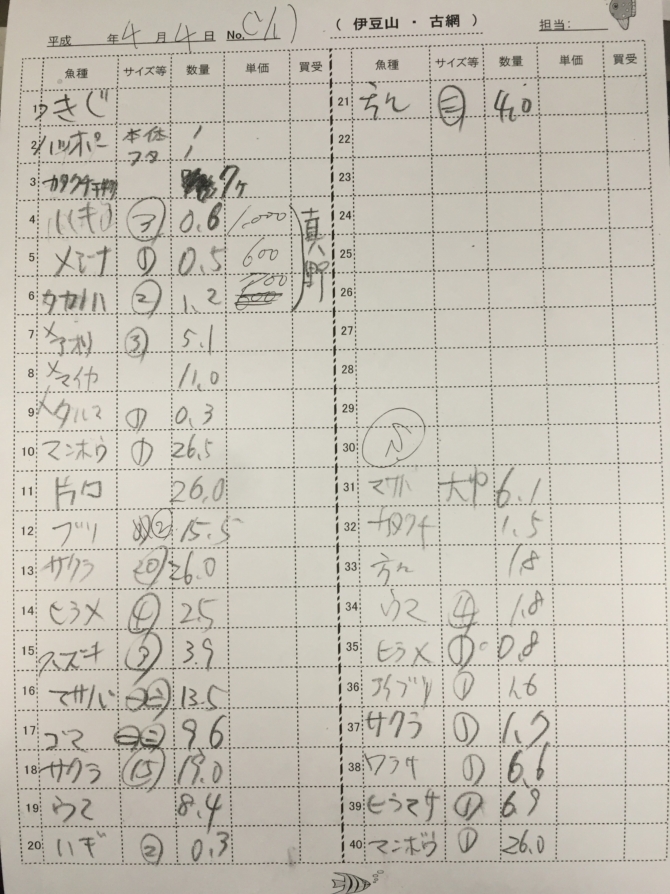 平成 年 4 月 4 日 No. ( 伊豆山 ・ 古網 ) 担当:
魚種 サイズ等 数量 単価 買受
うきじ
2 ハッポー 本体 1
フタ 1
3 カタクチ 7ヶ
4 ③ 0.6 1,000 真野
5 メジナ ① 0.5 600
6 タカノハ ② 1.2 700
7 アオリ ③ 5.1
8 マイカ 11.0
9 ダルマ ① 0.3
10 マンボウ ① 26.5
11 片口 26.0
12 ブリ ② 15.5
13 サクラ ⑳ 26.0
14 ヒラメ ④ 2.5
15 スズキ ③ 3.9
16 マサバ 13.5
17 ゴマ 9.6
18 サクラ ⑮ 19.0
19 ウマ 8.4
20 いぎ ② 0.3
魚種 サイズ等 数量 単価 買受
21 方々 ㊂ 4.0
22
23
24
25
26
27
28
29
30
31 マサバ 大中 6.1
32 カタクチ 1.5
33 方々 1.8
34 ウマ ④ 1.8
35 ヒラメ ① 0.8
36 ① 1.6
37 サクラ ① 1.7
38 ワラサ ① 6.6
39 ヒラマサ ① 6.9
40 マンボウ ① 26.0